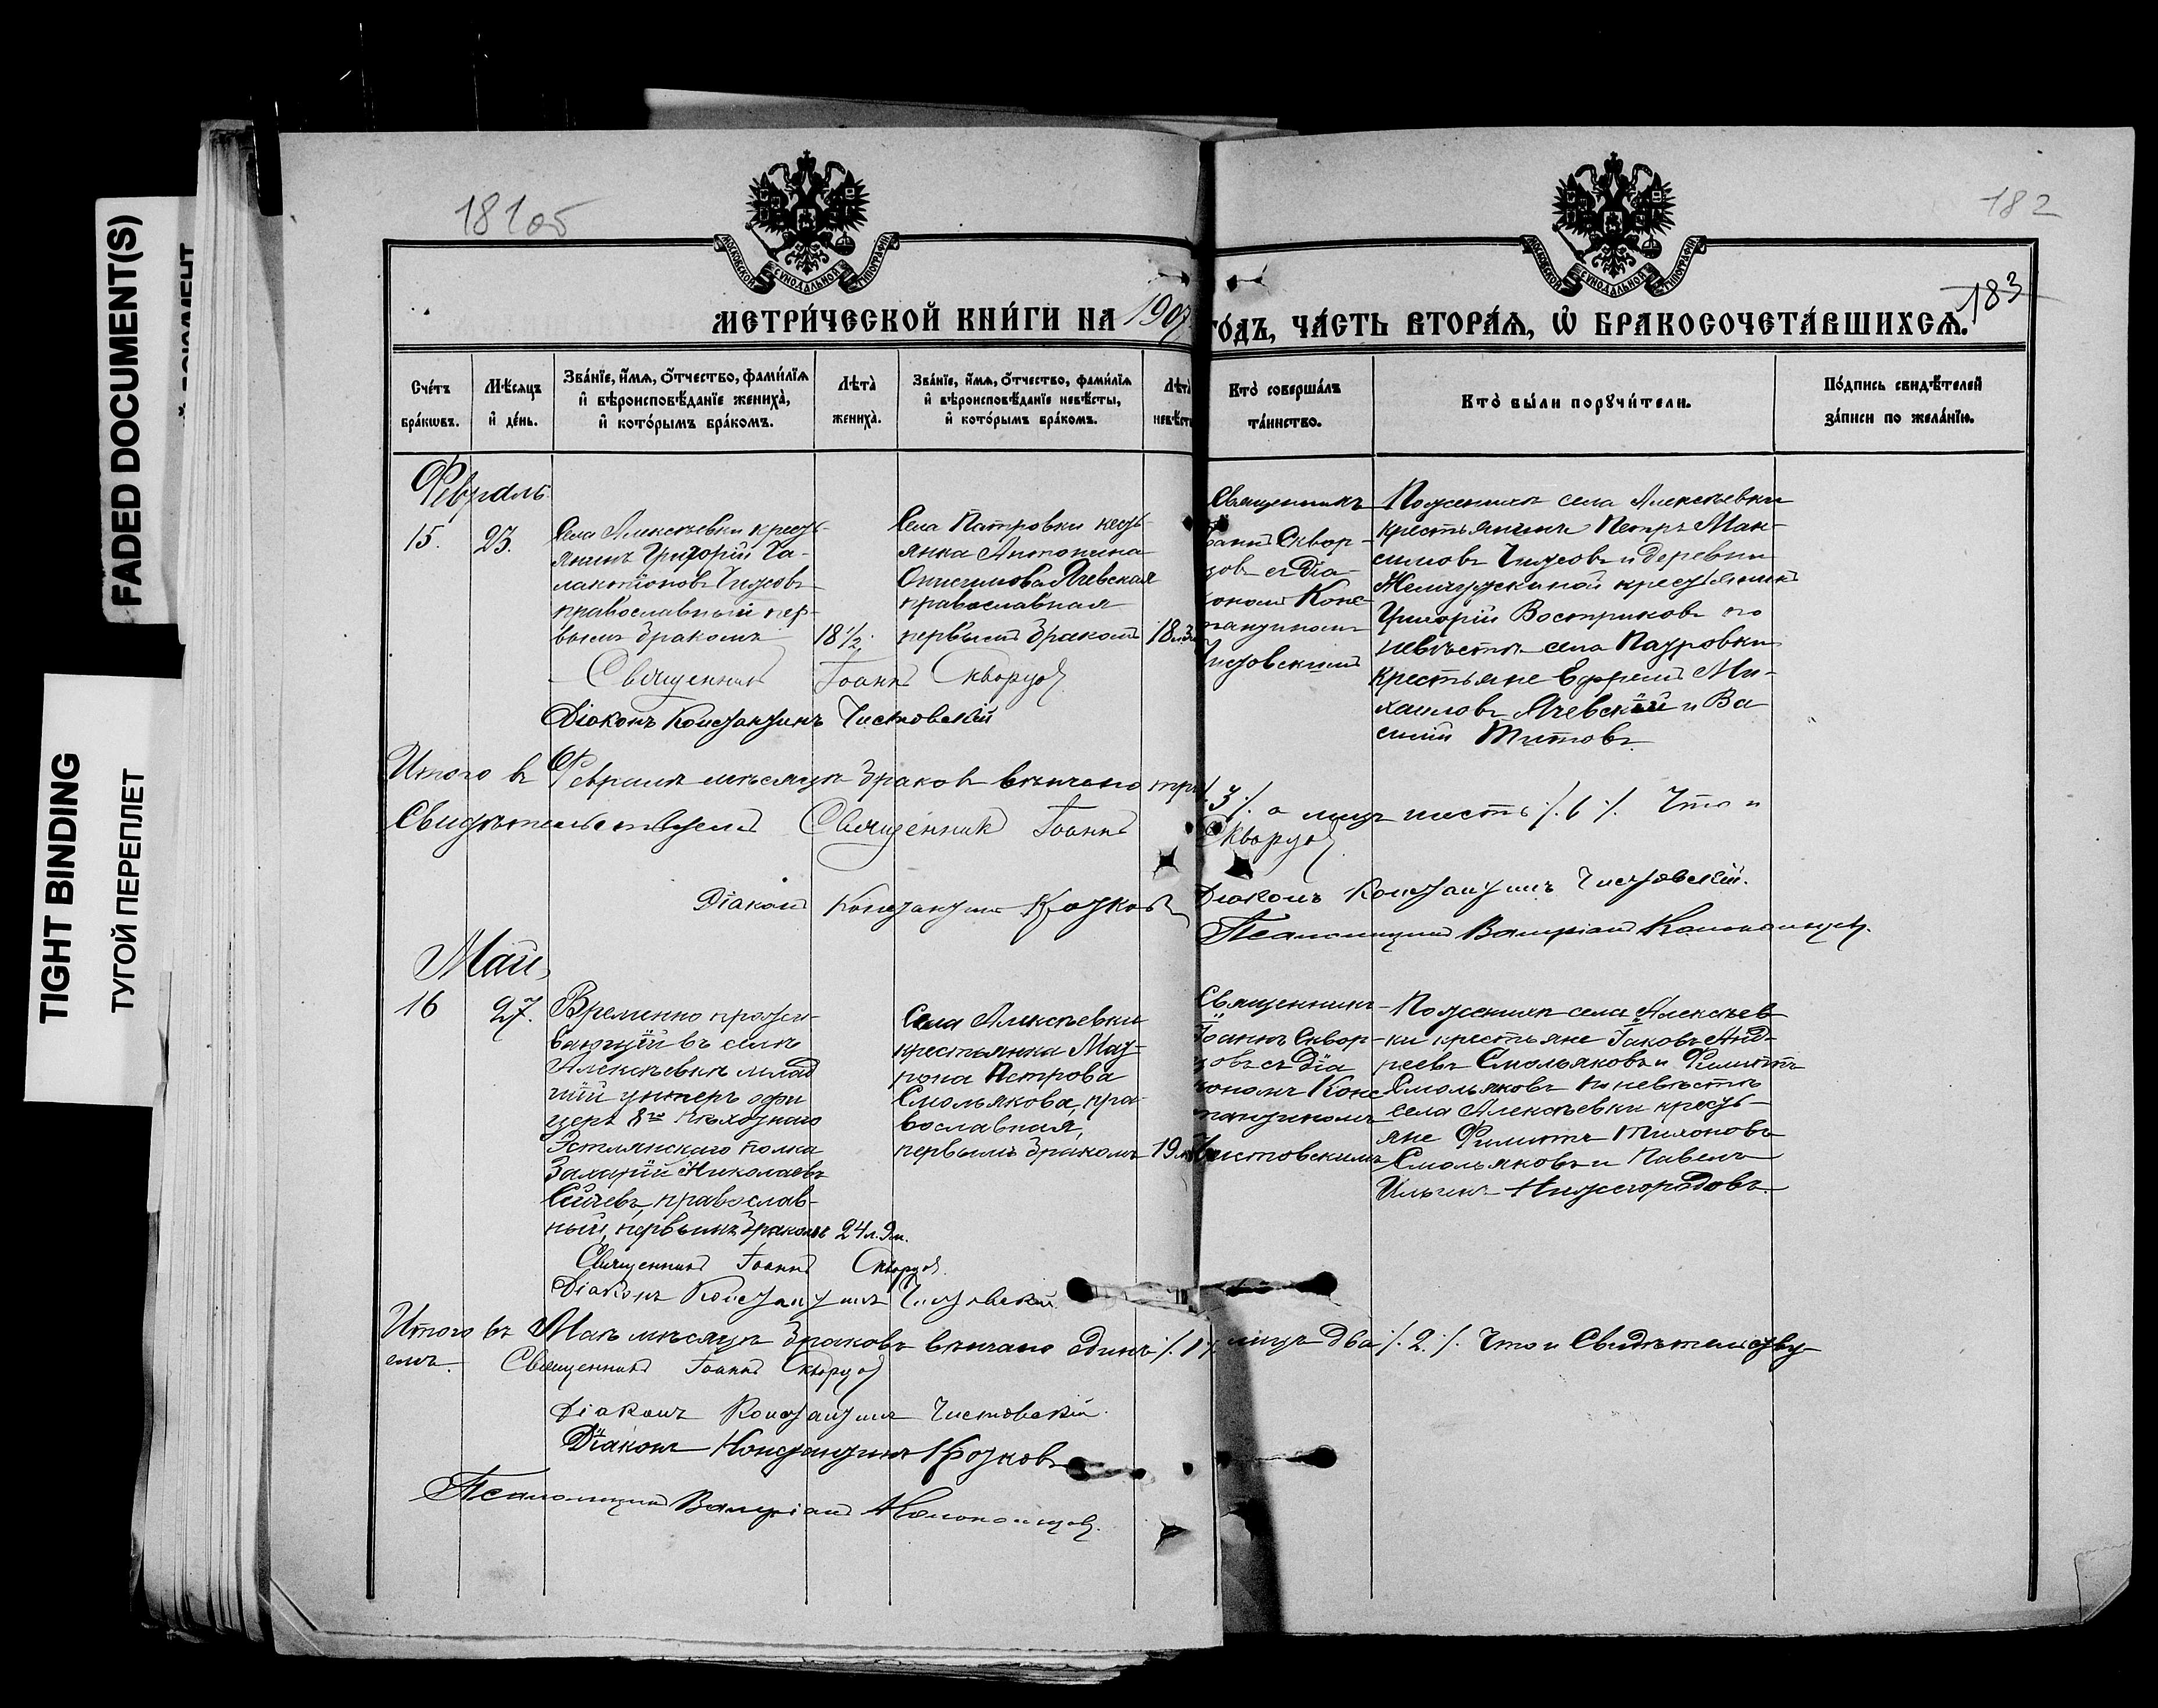 FADED DOCUMENT(S)
TIGHT BINDING
ТУГОЙ ПЕРЕПЛЕТ
181об
182
183
МОСКОВСКОЙ СУНОДАЛЬНОЙ ТИПОГРАФІИ
МОСКОВСКОЙ СУНОДАЛЬНОЙ ТИПОГРАФІИ
МЕТРИ́ЧЕСКОЙ КНИ́ГИ НА 1907
ГО́ДЪ, ЧА́СТЬ ВТОРА́Ѧ, Ѽ БРАКОСОЧЕТА́ВШИХСѦ.
Сче́тъ бра́кѡвъ.
Мѣ́сяцъ и҆ де́нь.
Зва́нїе, и҆́мѧ, ѻ҆́тчество, фами́лїѧ
и҆ вѣроисповѣ́данїе жениха̀,
и҆ кото́рымъ бра́комъ.
Лѣта̀ жениха̀.
Зва́нїе, и҆́мѧ, ѻ҆́тчество, фами́лїѧ
и҆ вѣроисповѣ́данїе невѣ́сты,
и҆ кото́рымъ бра́комъ.
Лѣта̀ невѣ́ст
Кто̀ соверша́лъ
та́инство.
Кто̀ бы́ли порꙋчи́тели.
По́дпись свидѣ́телей
за́писи по жела́нїю.
Февраль
15.
23.
Села Алексѣевки кресть-
янинъ Григорій Га-
лактіоновъ Чижовъ
православный пер-
вымъ бракомъ
18 1/2.
Села Патровки кресть-
янка Антонина
Онисимова Ячевская
православная
первымъ бракомъ
18
Священникъ
оаннъ Сквор-
цовъ съ Діа-
кономъ Конс-
тантиномъ
Чистовскимъ
По женихѣ села Алексѣевки
крестьянинъ Петръ Мак-
симовъ Чижовъ и деревни
крестьянинъ
Григорій Востриковъ по
невѣстѣ села Патровки
крестьяне Ефремъ Ми-
хаиловъ Ячевскій и Ва
силій Титовъ.
Священникъ Іоаннъ Скворцовъ
Діаконъ Константинъ Чистовскій
Итого въ Февралѣ мѣсяцѣ браковъ вѣнчано три
/. 3 /. а лицъ шесть /. 6 /. Что и
Свидѣтельствуемъ Священникъ Іоаннъ
Скворцовъ
Діаконъ Константинъ Кротковъ
Діаконъ Константинъ Чистовскій.
Псаломщикъ Валеріанъ
Май
16
27.
Временно прожи-
вающій въ селѣ
Алексѣевкѣ млад
шій унтеръ офи
церъ 8го Пѣхотнаго
Эстлянскаго полка
Захарій Николаевъ
Сычевъ, православ-
ный, первымъ бракомъ
24 л. 9 м.
Села Алексѣевки
крестьянка Мат-
рона Петрова
Смольякова, пра-
вославная,
первымъ бракомъ
19 л
Священникъ
Іоаннъ Сквор-
цовъ съ Діа
кономъ Конс
тантиномъ
Чистовскимъ
По женихѣ села Алексѣев
ки крестьяне Іаковъ Анд-
реевъ Смольяковъ и Филиппъ
Смольяковъ По невѣстѣ
села Алексѣевки кресть-
яне Филиппъ Тихоновъ
Смольяковъ и Павелъ
Ильинъ Нижегородовъ.
Священникъ Іоаннъ Скворцовъ.
Діаконъ Константинъ Чистовскій
Итого въ Маѣ мѣсяцѣ браковъ вѣнчано одинъ /. 1 /. лицъ два /. 2. /. Что и Свидѣтельству-
емъ. Священникъ Іоаннъ Скворцовъ
Діаконъ Константинъ Чистовскій.
Діаконъ Константинъ Кротковъ
Псаломщикъ Валеріанъ